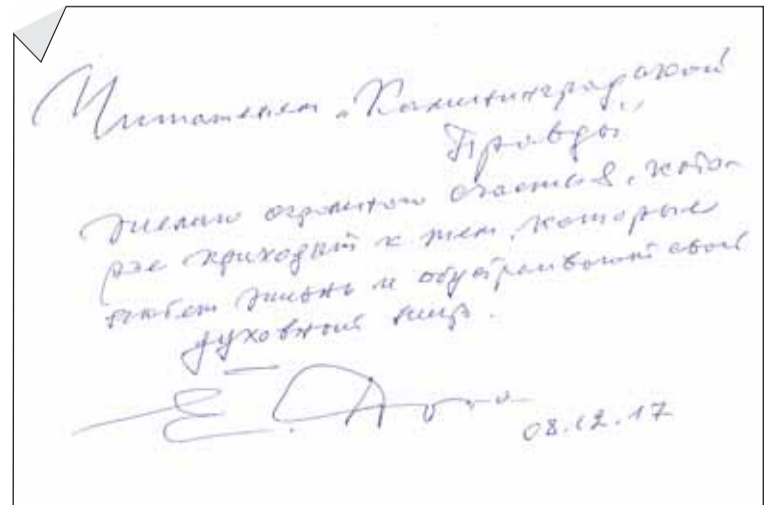 Читателям „Калининградской
Правды"
желаю огромного счастья, кото-
рое приходит к тем, которые
любят жизнь и обустраивают свой
духовный мир.
Е. Дога
08.12.17